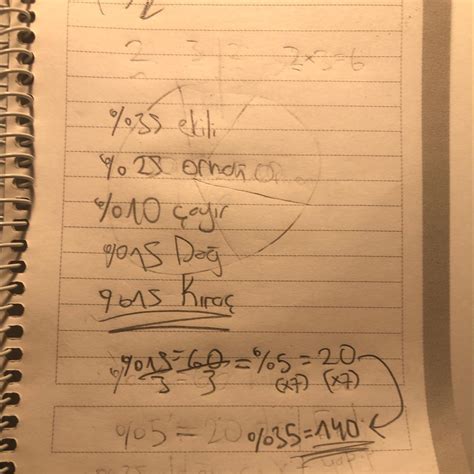 2 3 2 2x3=6
%35 ekili
%25 orman
%10 çayır
%15 Dağ
%15 Kıraç
%15 = 60 = %5 = 20
3 3 (x7) (x7)
%5 = 20 %35 = 140